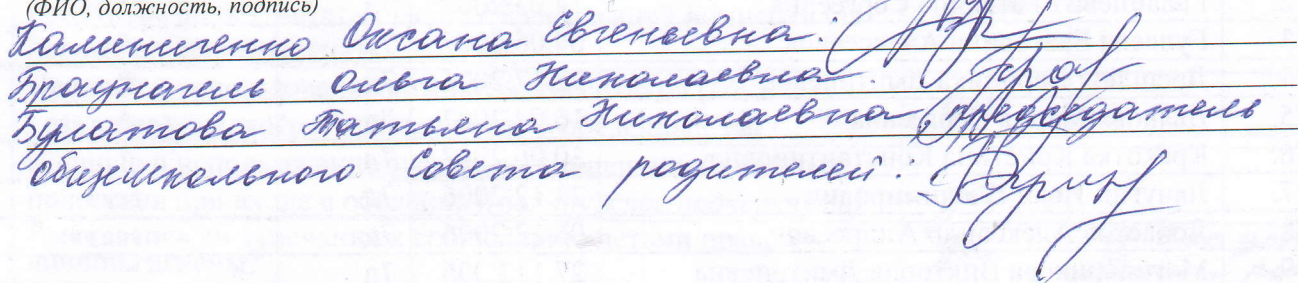 (ФИО, должность, подпись)
Калиниченко Оксана Евгеньевна.
Браунагель Ольга Николаевна.
Булатова Татьяна Николаевна, председатель
общешкольного Совета родителей.